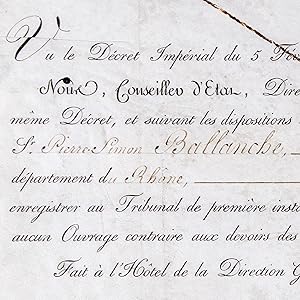 Vu le Décret Impérial du 5 Fév
Nous, Conseiller d'Etat, Dire
même Décret, et suivant les dispositions
Sr. Pierre-Simon Ballanche,
département du Rhône,
enregistrer au Tribunal de première insta
aucun Ouvrage contraire aux devoirs des
Fait à l'Hôtel de la Direction G